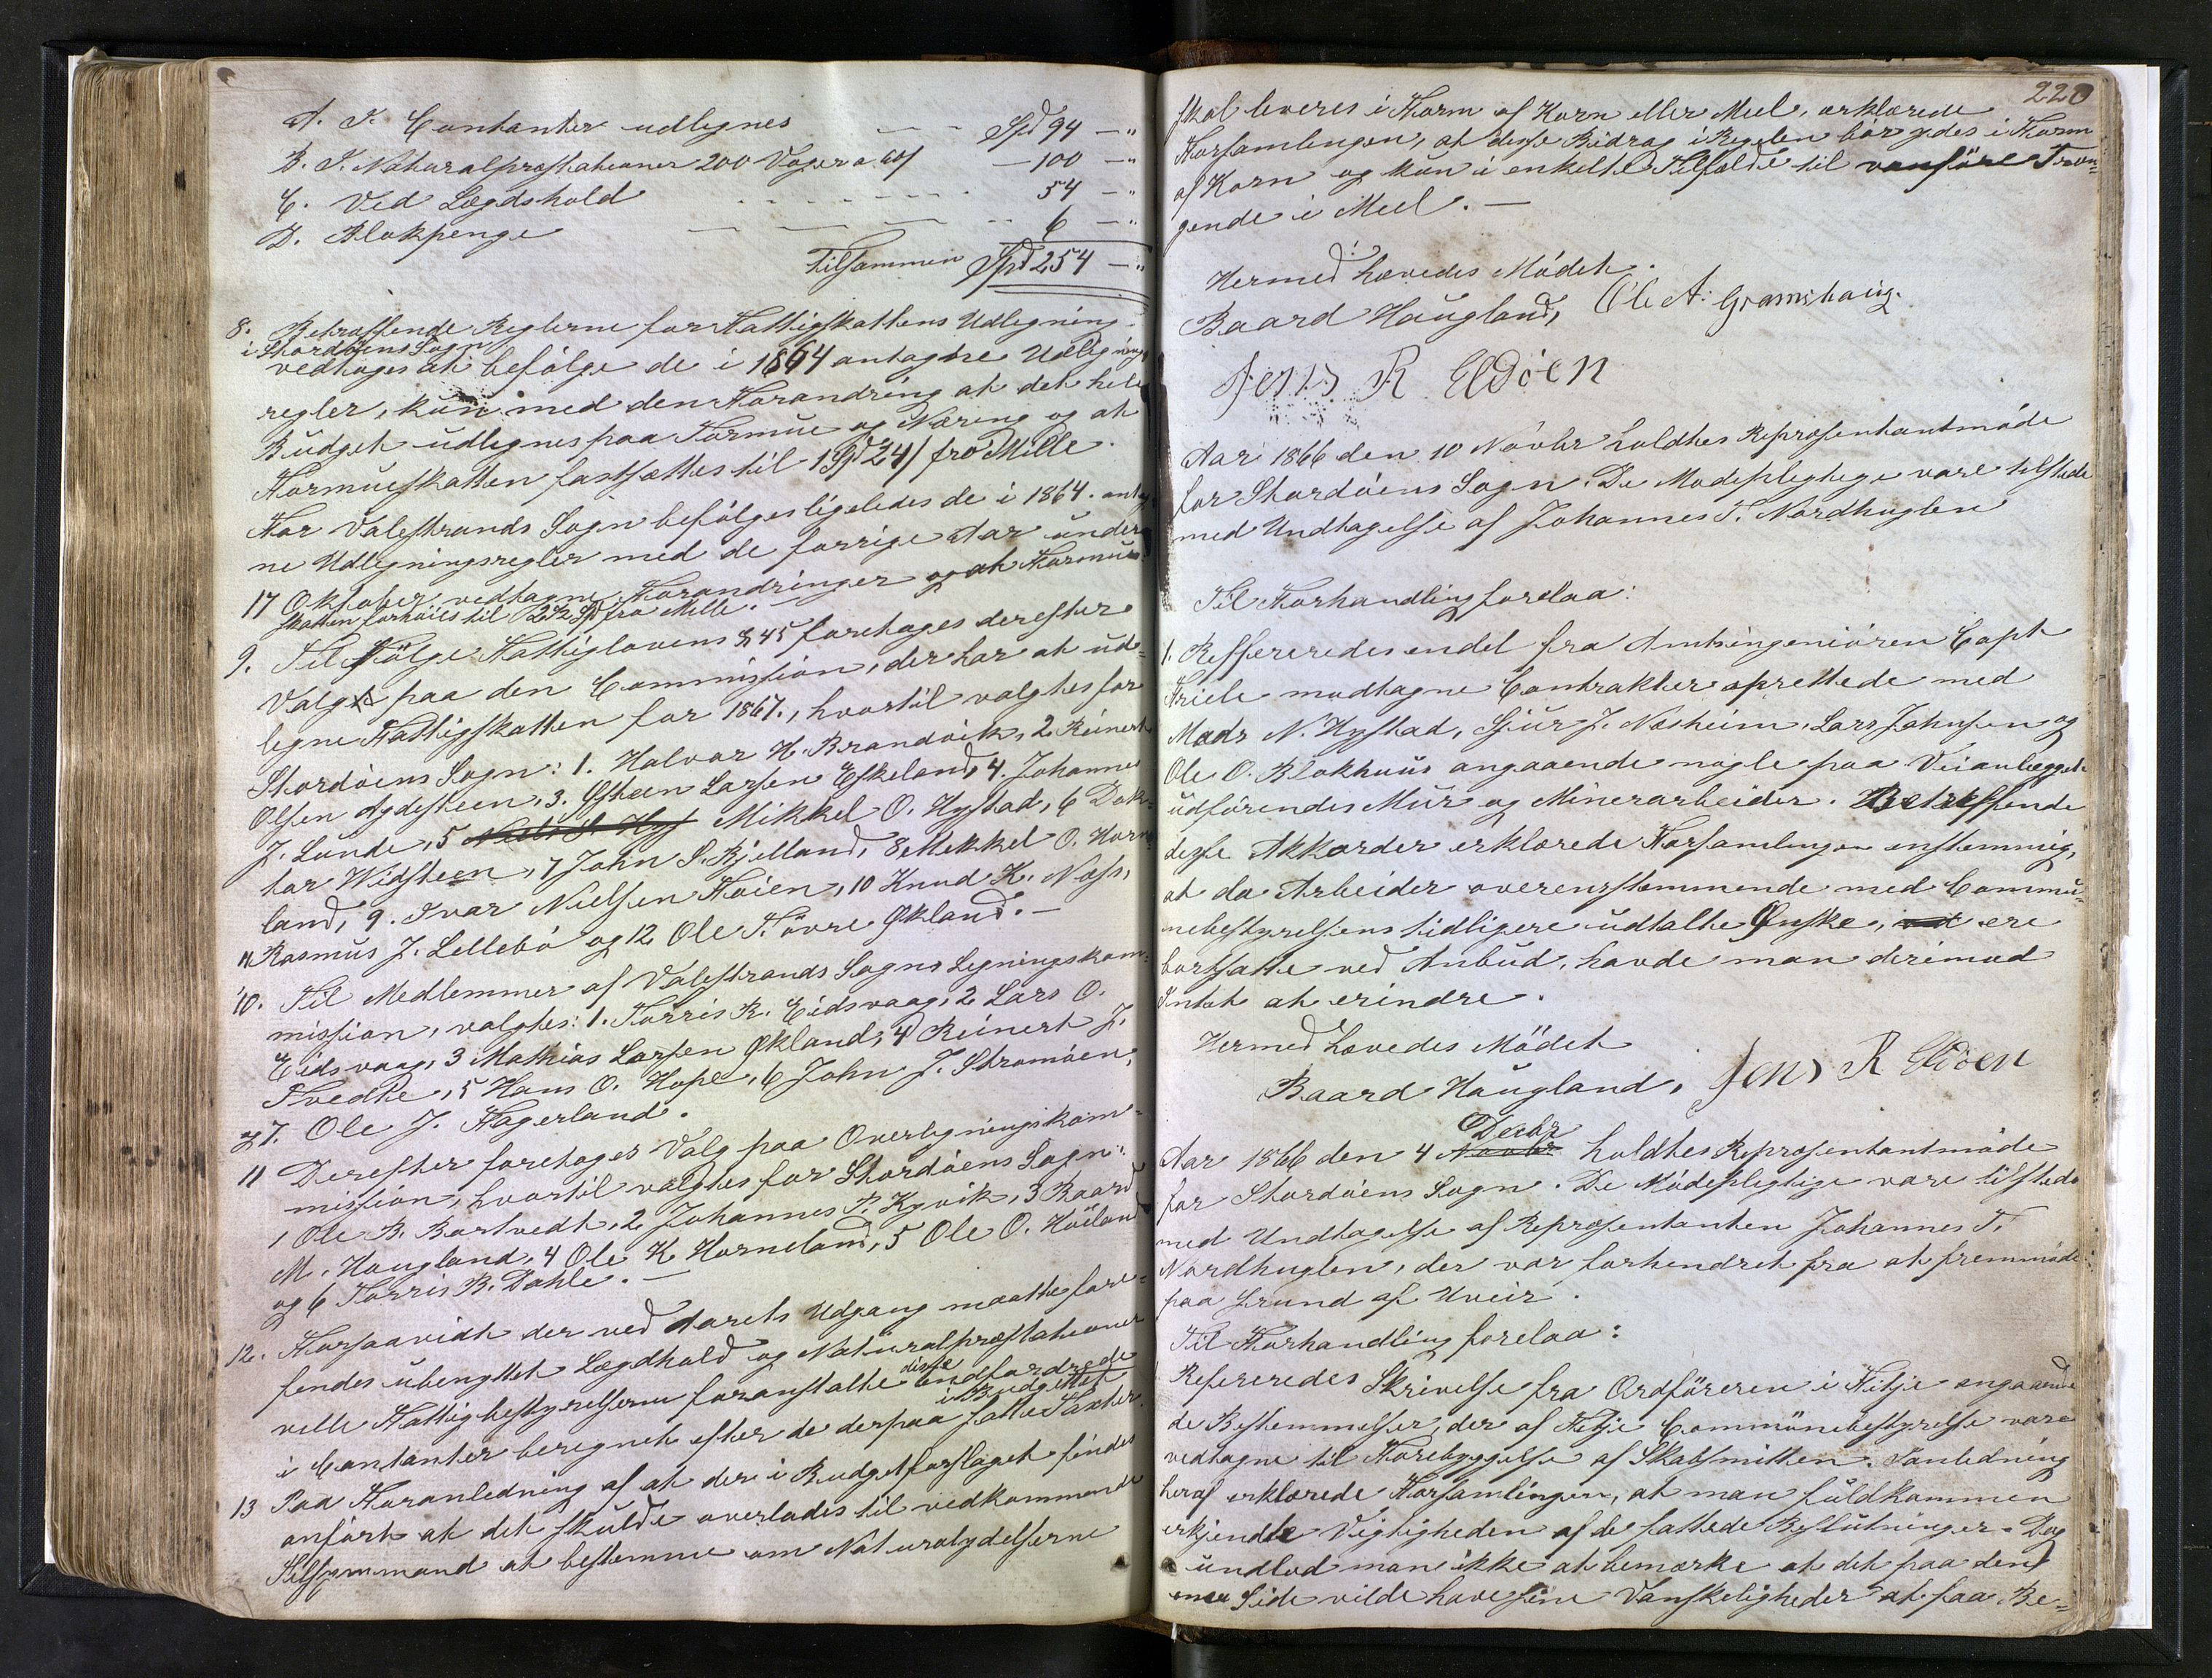 A. I Contanter udlignes — — Spd 94 — "
B. I. Naturalpræstationer 200 Voger a 60 s — 100 — "
C. Ved Lægdshold - - - - - - 54 — "
D. Blokpenge — — — - - 6 — "
Tilsammen Spd 254 — "
8. Betræffende Reglerne for Fattigskattens Udligning
i Stordøens Sogn
vedtoges at befølge de i 1864 antagne Udlignings
regler, kun med den Forandring at det hele
Budget udlignes paa Formue og Næring og at
Formueskatten fastsættes til 1 Spd 24 s pro Mille.
For Valestrands Sogn befølges ligeledes de i 1864. antag
ne Udligningsregler med de forrige Aar under
17 Oktober vedtagne Forandringer og at Formue
skatten forhøies til 2 Spd pro Mille. —
9. Til Følge Fattiglovens § 45 foretoges derefter
Valg paa den Commission, der har at ud=
ligne Fattigskatten for 1867., hvortil valgtes for
Stordøens Sogn: 1. Halvor H. Brandvik, 2. Reinert
Olsen Agdesteen, 3. Østeen Larsen Eskeland, 4. Johannes
J. Lunde, 5 Mikkel O. Hystad, 6 Dok=
tor Widsteen, 7 John S. Bjelland, 8 Mekkel O. Horne
land, 9. Ivar Nielsen Høien, 10 Knud K. Næss,
11 Rasmus J. Lillebø og 12 Ole T. øvre Økland. —
10. Til Medlemmer af Valestrands Sogns Ligningskom=
mission, valgtes: 1. Torris R. Eidsvaag, 2 Lars O.
Eidsvaag, 3 Mathias Larsen Økland, 4 Reinert J.
Tvedte, 5 Hans O. Hope, 6 John J. Strømøen,
og 7. Ole J. Fagerland.
11 Derefter foretoges Valg paa Overligningskom=
mission, hvortil valgtes for Stordøens Sogn:
1 Ole B. Bortvedt, 2 Johannes P. Kyvik, 3 Baard
M. Haugland, 4 Ole K Horneland, 5 Ole O. Høiland
og 6 Torris B. Dahle. —
12. Forsaavidt der ved Aarets Udgang maatte fore=
findes ubenyttet Lægdhold og Naturalpræstationer
disse
ville Fattigbestyrelserne foranstalte indfordrede
i Budgettet
i Contanter beregnet efter de derpaa satte Taxter.
13 Paa Foranledning af at der i Budgetforslaget findes
anført at det skulde overlades til vedkommende
Tilsynsmand at bestemme om Naturalydelserne
220
skal leveres i Form af Korn eller Meel, erklærede
Forsamlingen, at disse Bidrag i Regelen bør ydes i Form
af Korn og kun i enkelte Tilfælde til vanføre Træn=
gende i Meel. —
Hermed hævedes Mødet.
Baard Haugland, Ole A. Gramshaug.
Jens R Eldøen
Aar 1866 den 10 Novbr holdtes Repræsentantmøde
for Stordøens Sogn. De Mødepligtige vare tilstede
med Undtagelse af Johannes T. Nordhuglen
Til Forhandling forelaa:
1. Reffereredes endel fra Amtsingeniøren Capt
Kriele modtagne Contrakter oprettede med
Mads N. Hystad, Sjur J. Næsheim, Lars Johnsen og
Ole O. Blokhuus angaaende nogle paa Veianlægget
udførendes Mur og Minerarbeider. Betreffende
disse Akkorder erklærede Forsamlingen enstemmig,
at da Arbeider overensstemmende med Commu=
nebestyrelsens tidligere udtalte Ønske, ere
bortsatte ved Anbud, havde man derimod
Intet at erindre.
Hermed hævedes Mødet
Baard Haugland, Jens R Eldøen
Decbr
Aar 1866 den 4 Novbr holdtes Repræsentantmøde
for Stordøens Sogn. De Mødepligtige vare tilstede
med Undtagelse af Repræsentanten Johannes T.
Nordhuglen, der var forhendret fra at fremmøde
paa Grund af Uveir.
Til Forhandling forelaa:
Refereredes Skrivelse fra Ordføreren i Fitje angaaende
de Bestemmelser, der af Fitje Communebestyrelse vare
vedtagne til Forebyggelse af Skabsmitten. I anledning
heraf erklærede Forsamlingen, at man fuldkommen
erkjendte Vigtigheden af de fattede Beslutninger. Dog
undlod man ikke at bemærke at det paa den
ene Side vilde have sine Vanskeligheder at faa Be=